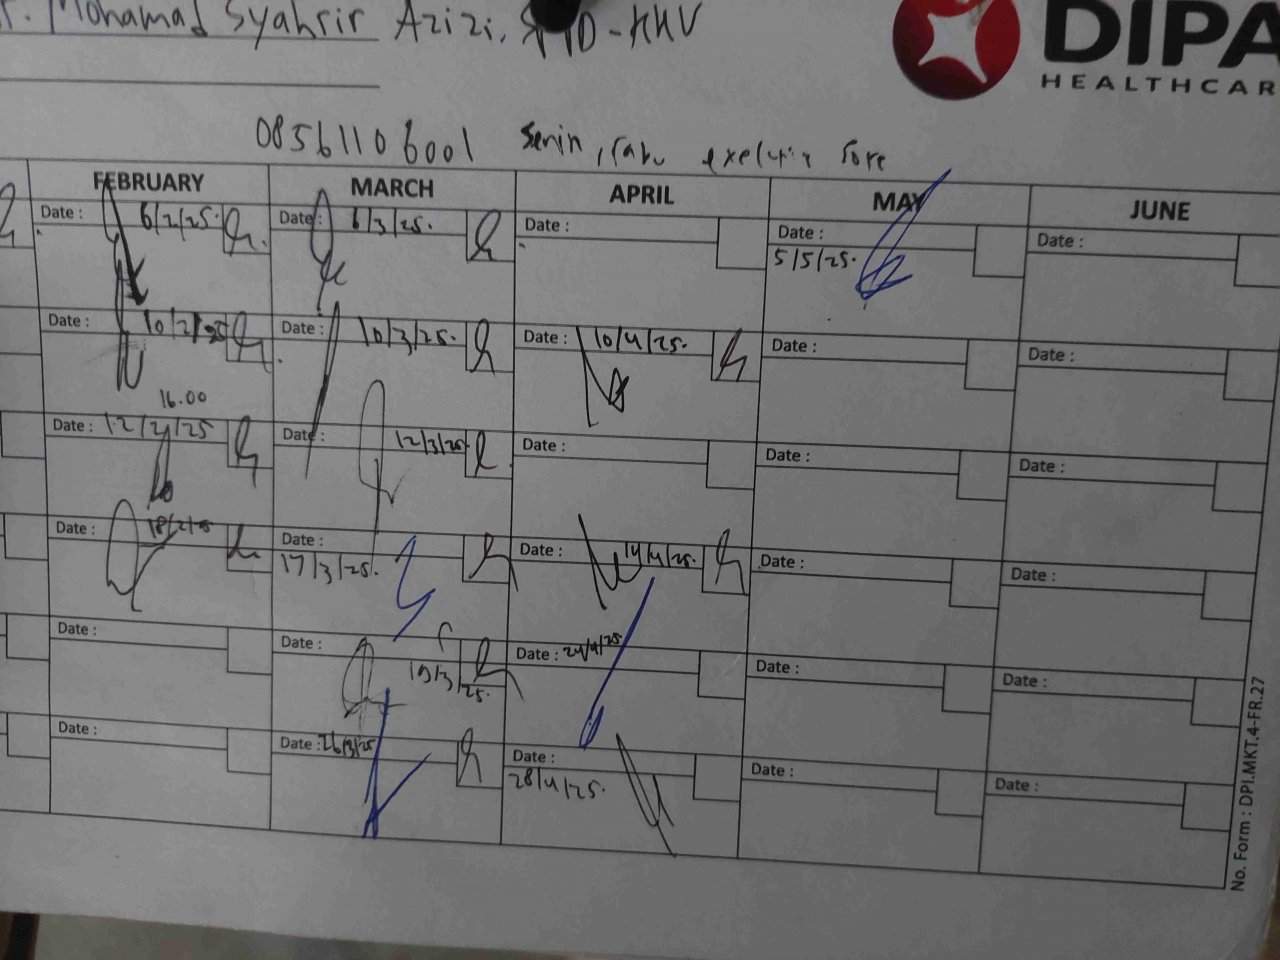 r. Mohamad Syahrir Azizi, SpPD-KHV
DIPA
HEALTHCAR
085611106001 Senin, rabu sore
FEBRUARY MARCH APRIL MAY JUNE
Date : 6/2/25. Date : 6/3/25. Date : Date : 5/5/25. Date :
Date : 10/2/25 Date : 10/3/25. Date : 10/4/25. Date : Date :
16.00
Date : 12/2/25 Date : 12/3/25 Date : Date : Date :
Date : 18/2/25 Date : 17/3/25. Date : 14/4/25. Date : Date :
Date : Date : 19/3/25. Date : 24/4/25 Date : Date :
Date : Date : 26/3/25 Date : 28/4/25. Date : Date :
No. Form : DPI.MKT.4-FR.27